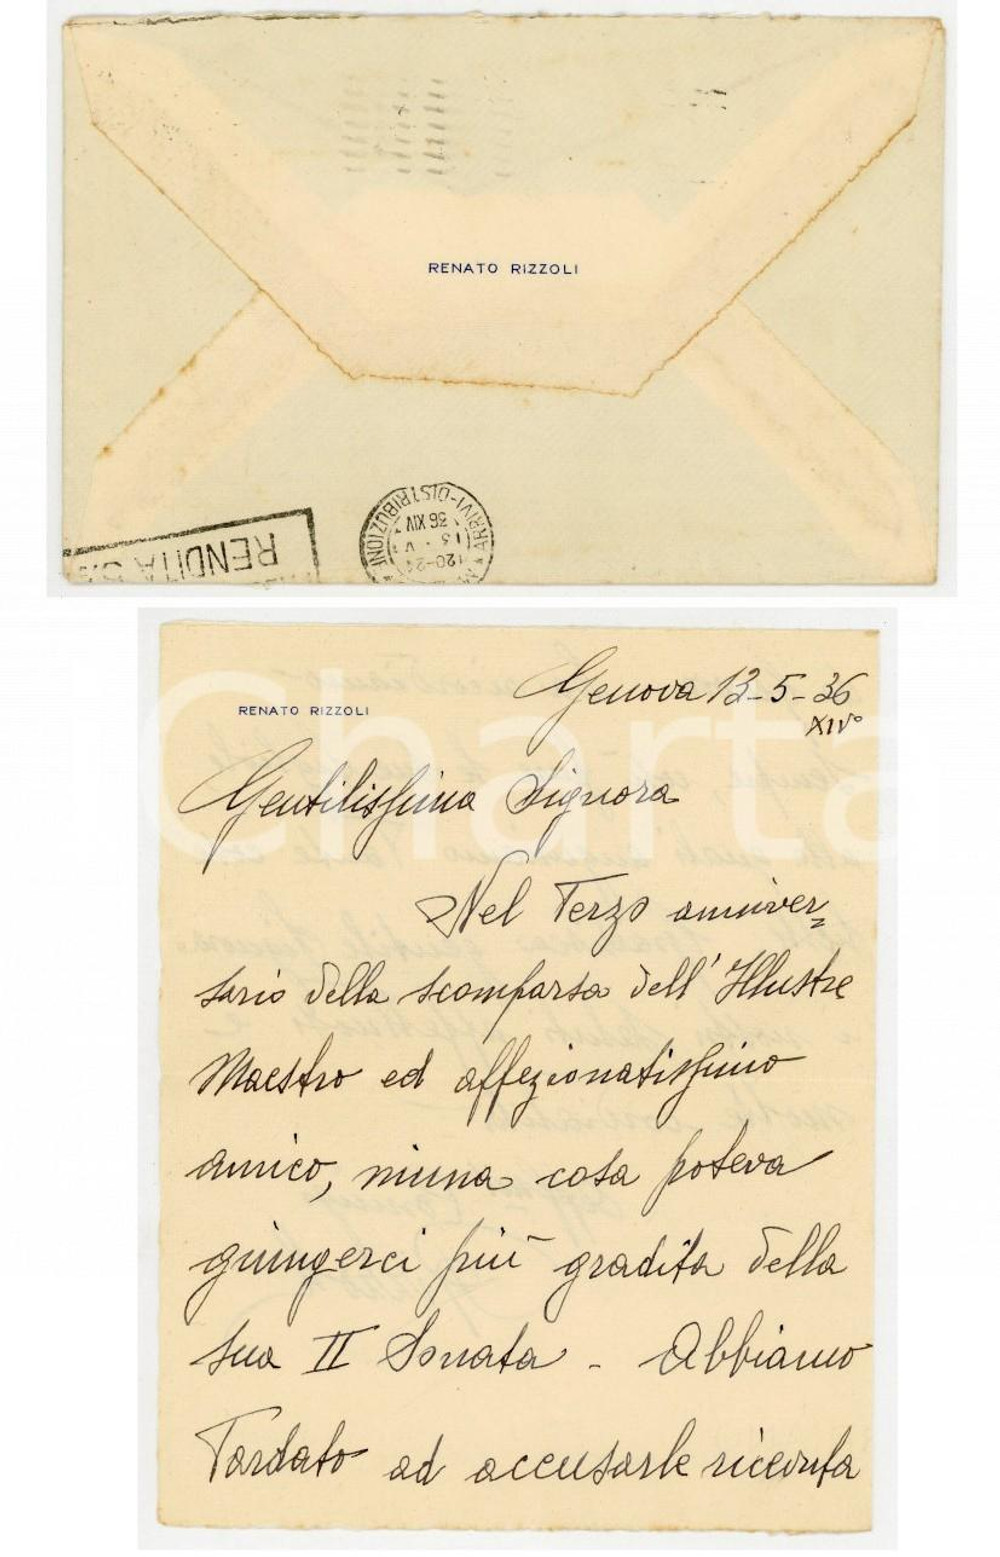 RENATO RIZZOLI
RENDITA
ARRIVI-DISTRIBUZIONE
20-21
13 · V
36 XIV
Charta
RENATO RIZZOLI
Genova 13-5-36
XIV°
Gentilissima Signora
Nel Terzo anniver=
sario della scomparsa dell'Illustre
Maestro ed affezionatissimo
amico, niuna cosa poteva
giungerci più gradita della
sua II Sonata - Abbiamo
Tardato ad accusarle ricevuta